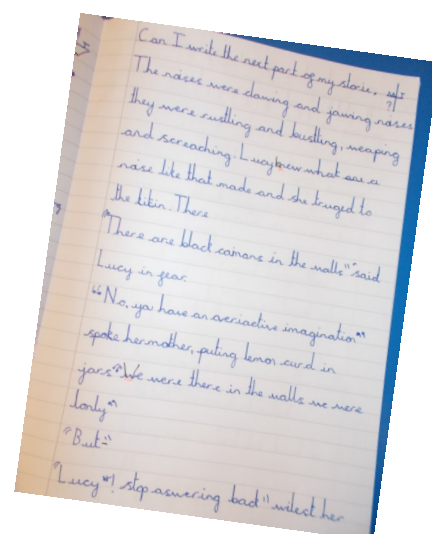 Can I write the next part of my storie.
The noises were clawing and jawing noises
they were rustling and bustling, weaping
and screaching. Lucy knew what sort a
noise like that made and she truged to
the kikin. There
"There are black caimans in the walls" said
Lucy in fear.
"No, you have an overiactive imagination"
spoke her mother, puting lemon curd in
jars "We were there in the walls we were
lonly"
"But-"
"Lucy"! stop aswering back" wilest her